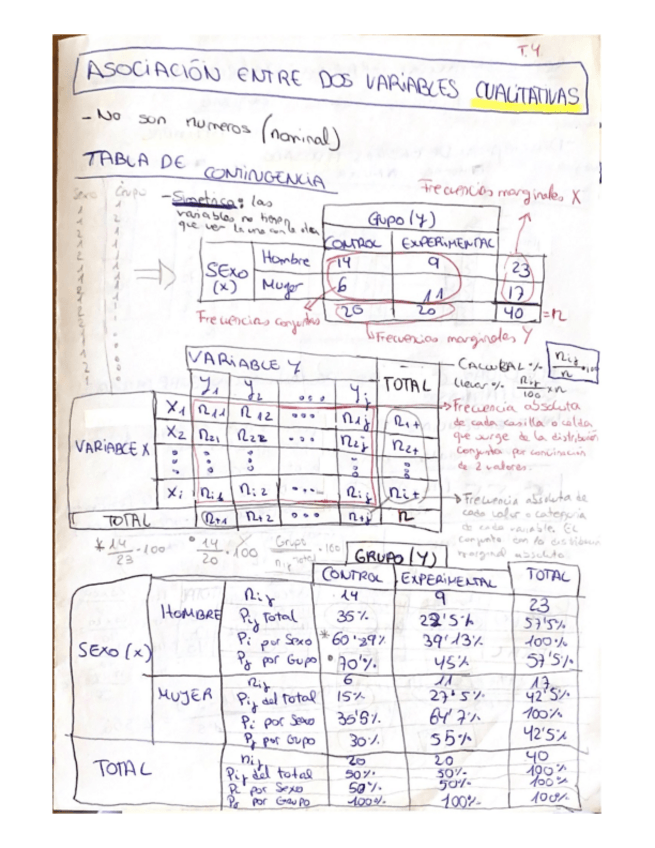 T.4.
ASOCIACIÓN ENTRE DOS VARIABLES CUALITATIVAS
- No son numeros (nominal)
TABLA DE CONTINGENCIA
Sexo Grupo
- Simetrica: las
variables no tienen
que ver la una con la otra
Frecuencias marginales X
Gupo (Y)
CONTROL EXPERIMENTAL
SEXO (X) Hombre 14 9 23
Mujer 6 11 17
20 20 40 = n
Frecuencias conjuntas
Frecuencias marginales Y
VARIABLE Y
Y1 Y2 ... Yj TOTAL
VARIABLE X
X1 n11 n12 ... n1j n1+
X2 n21 n22 ... n2j n2+
Xi ni2 ... nij ni+
TOTAL n+1 n+2 ... n+j n
- CALCULAR % nij/n · 100
llevar % nij/100 x n
Frecuencia absoluta
de cada casilla o celda
que surge de la distribución
conjunta por combinación
de 2 valores.
Frecuencia absoluta de
cada valor o categoria
de cada variable. El
conjunto con la
marginal absoluta
* 14/23 · 100 ° 14/20 · 100 Grupo
GRUPO (Y)
CONTROL EXPERIMENTAL TOTAL
SEXO (X)
HOMBRE nij 14 9 23
Pij Total 35% 22'5% 57'5%
Pi por Sexo * 60'87% 39'13% 100%
Pj por Gupo ° 70% 45% 57'5%
MUJER nij 6 11 17
Pij del total 15% 27'5% 42'5%
Pi por Sexo 35'8% 64'7% 100%
Pj por Gupo 30% 55% 42'5%
TOTAL nij 20 20 40
Pij del total 50% 50% 100%
Pi por Sexo 50% 50% 100%
Pj por Grupo 100% 100% 100%